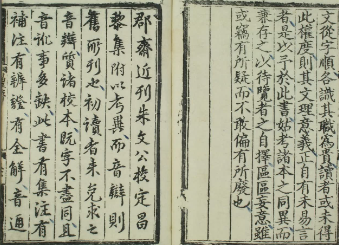 文從字順各識其職為貴讀者或未得
此權度則其文理意義正自有未易言
者是以予於此書姑考諸本之同異而
兼存之以待覽者之自擇區區妄意雖
或竊有所疑而不敢偏有所廢也
郡齋近刊朱文公校定昌
黎集附以考異而音辯則
舊所刊也初讀者未免求之
音辯質諸校本既字不盡同且
音訛事多缺此書有集注有
補注有辯證有全解音通